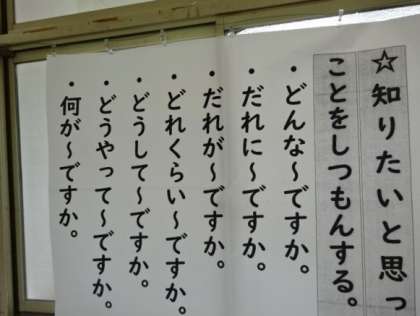 ☆知りたいと思っ
ことをしつもんする。
・どんな～ですか。
・だれに～ですか。
・だれが～ですか。
・どれくらい～ですか。
・どうして～ですか。
・どうやって～ですか。
・何が～ですか。